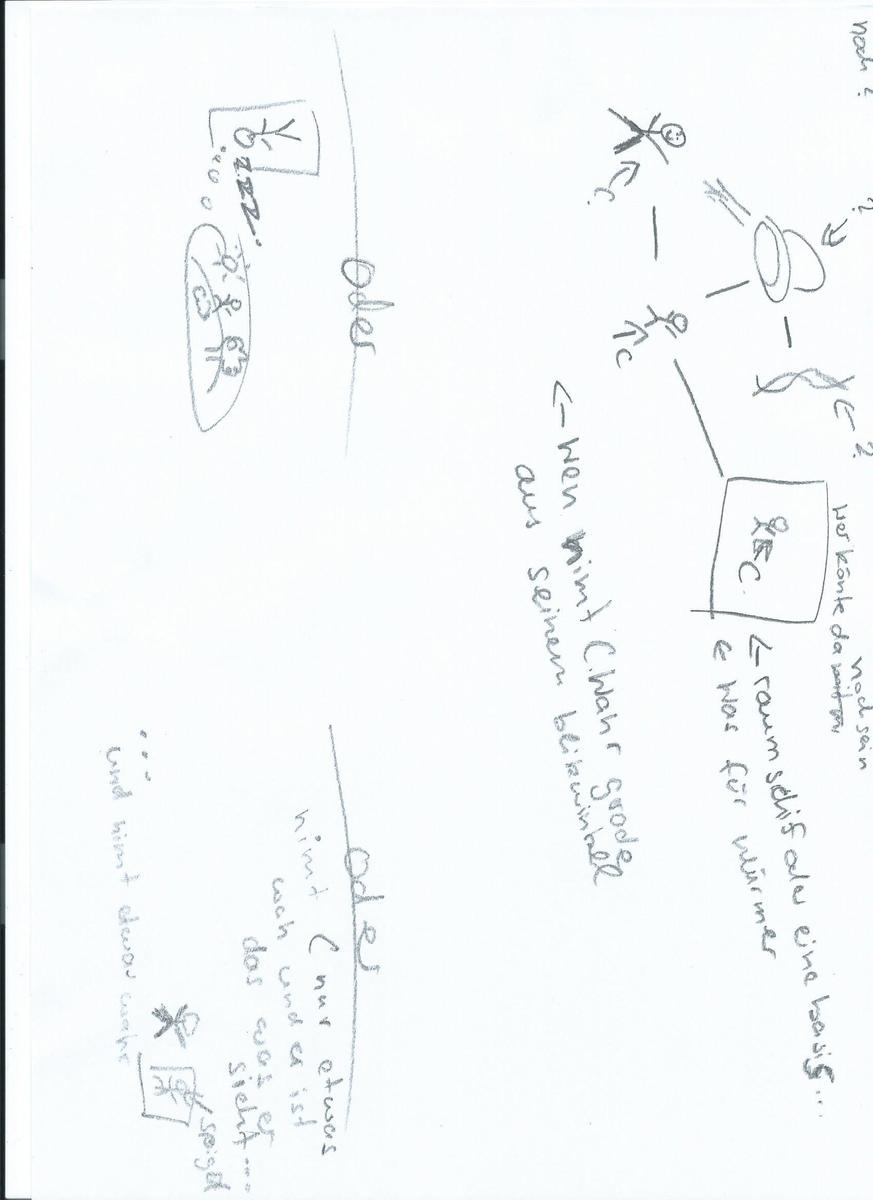 noch?
?
← ?
wer könte da
noch sein
C.
C
C.
← raumschif oder eine basis...
← was für würmer
← wen nimt C. wahr grade
aus seinem blikwinkell
Oder
zzzz.
oder
nimt C nur etwas
wah und er ist
das was er
sieht....
spigel
...
und nimt etwas wahr